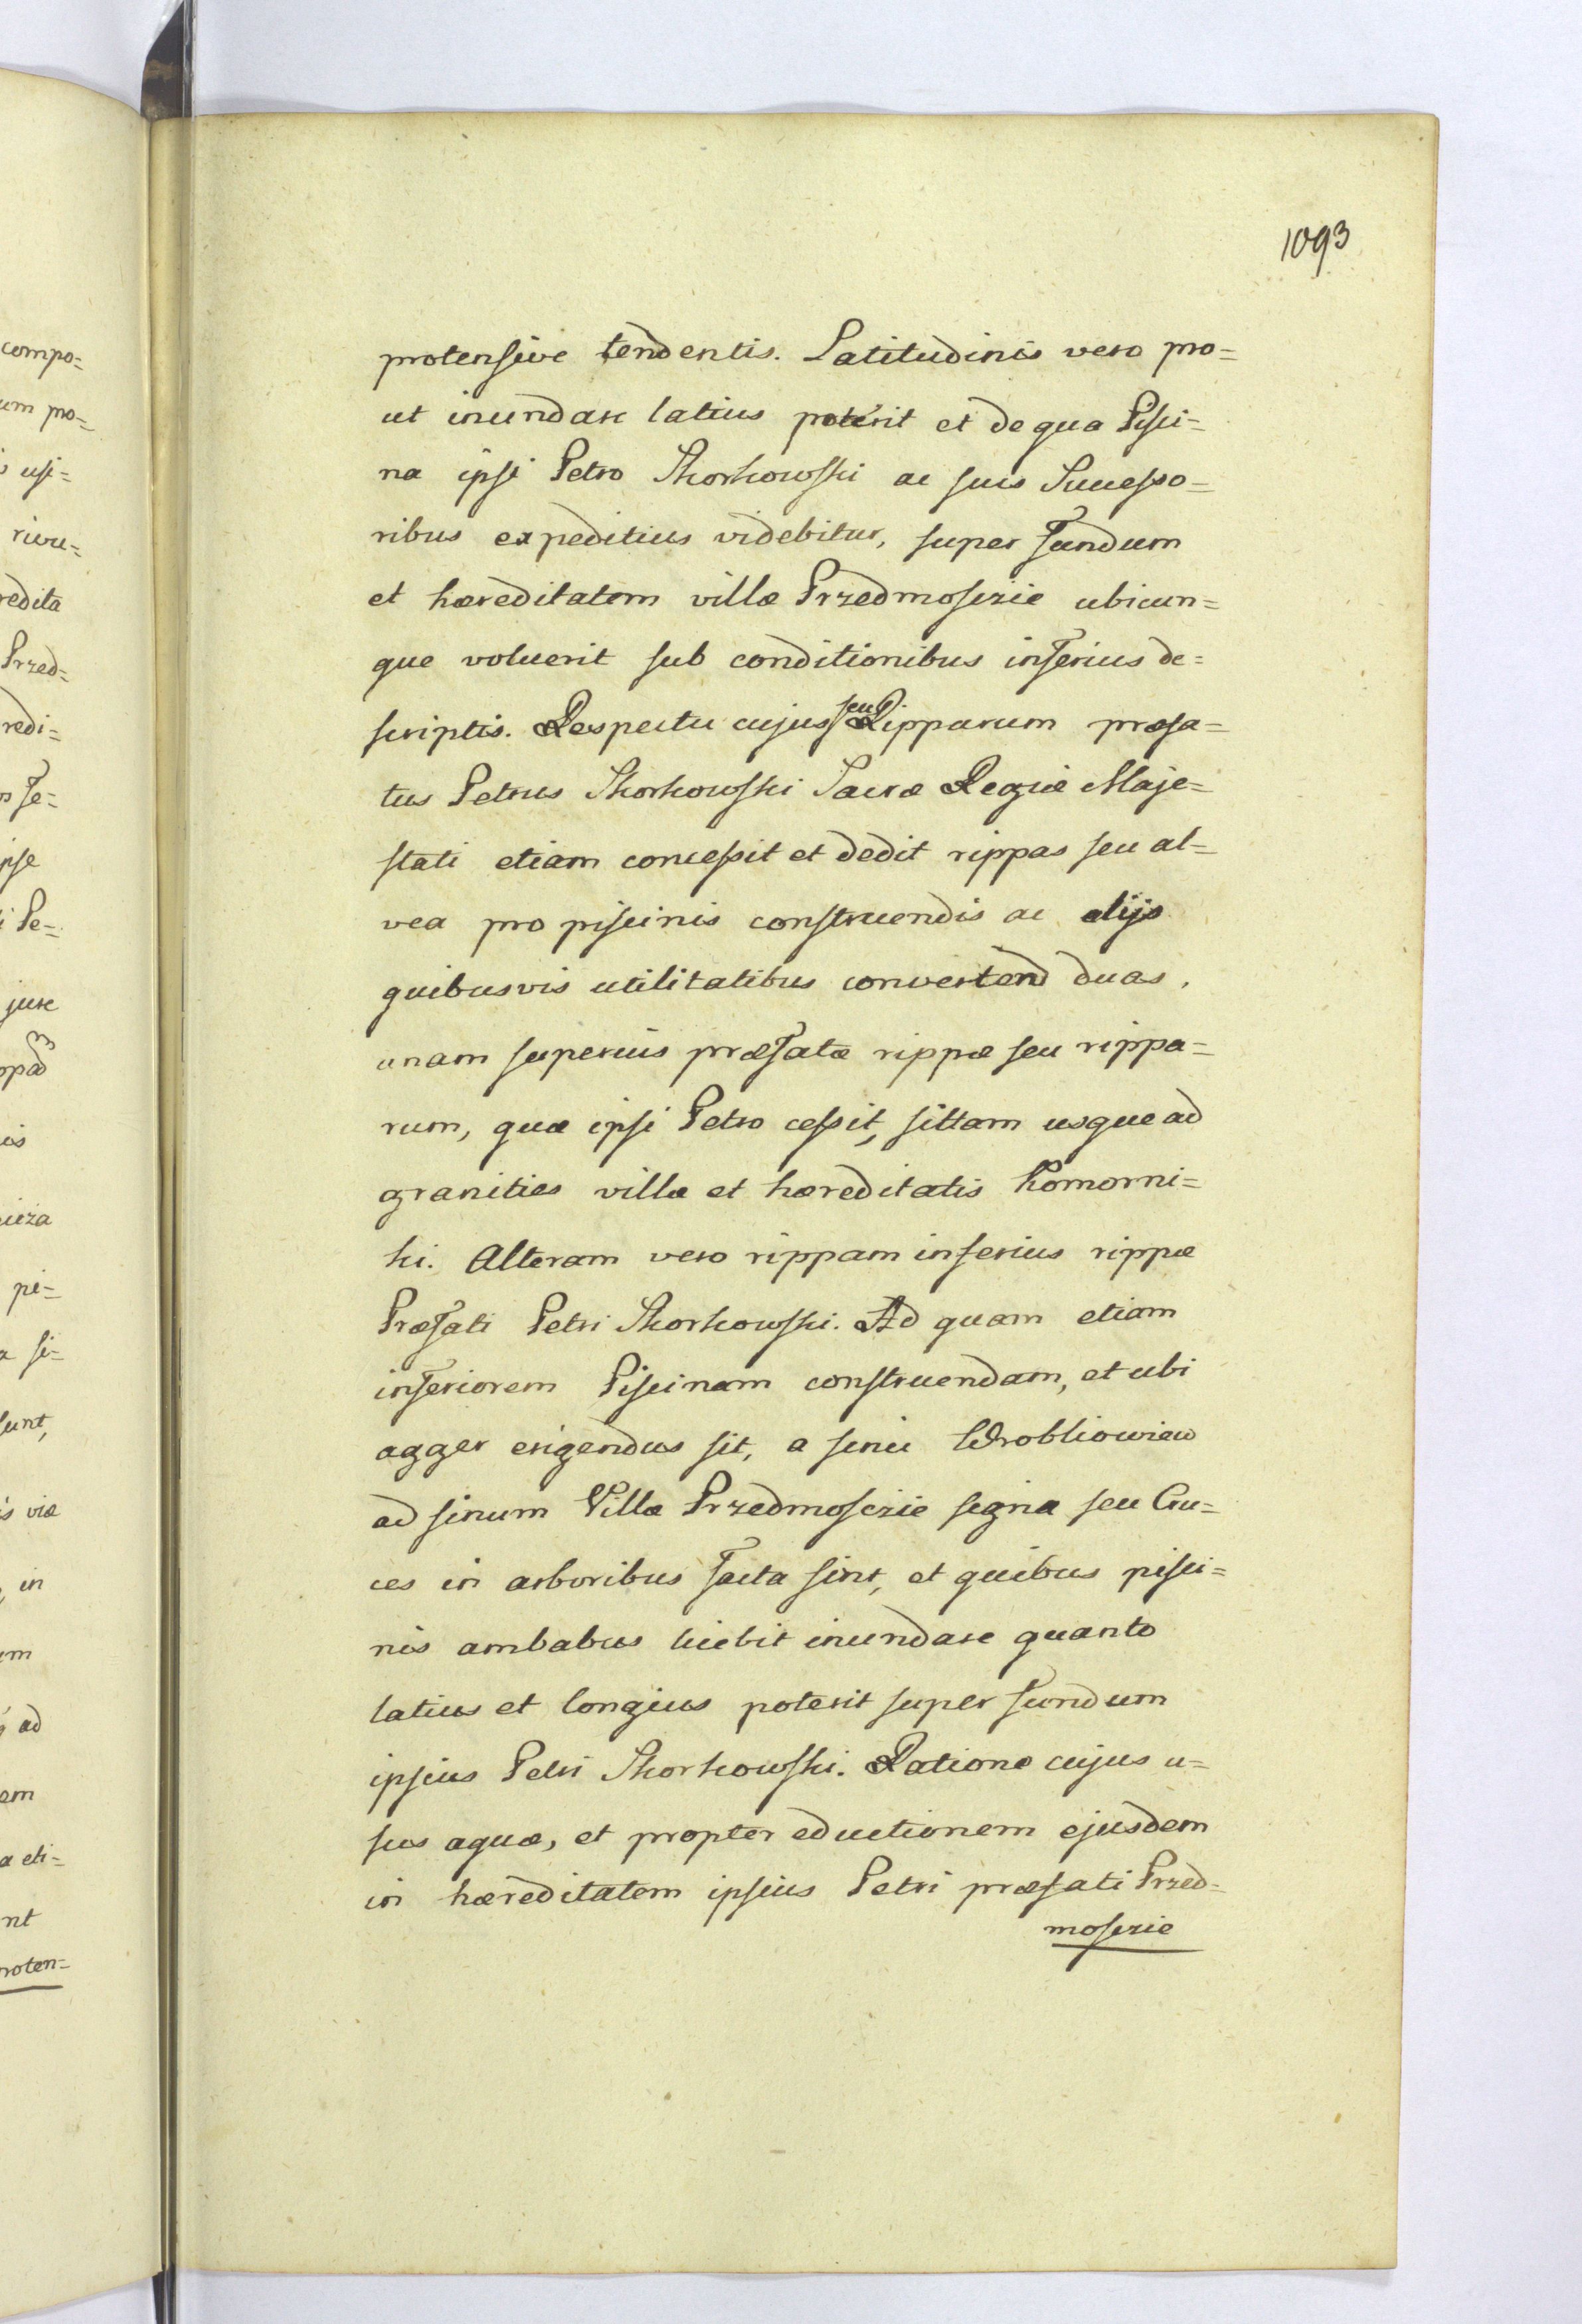 1093
protensive tendentis. Latitudinis vero pro=
ut inundare latius poterit et de qua Pisci=
na ipsi Petro Skorkowski ac suis Successo=
ribus expeditius videbitur, super fundum
et hæreditatem villæ Przedmoscie ubicun=
que voluerit sub conditionibus inferius de=
scriptis. Respectu cujus seu Ripparum præfa=
tus Petrus Skorkowski Sacræ Regiæ Maje=
stati etiam concessit et dedit rippas seu al=
vea pro piscinis construendis ac alijs
quibusvis utilitatibus convertend duas,
unam superius præfatæ rippæ seu rippa=
rum, quæ ipsi Petro cessit, sittam usque ad
granities villæ et hæreditatis Komorni=
ki. Alteram vero rippam inferius rippæ
Præfati Petri Skorkowski. Ad quam etiam
inferiorem Piscinam construendam, et ubi
agger erigendus sit, a sinu Wrobliowiew
ad sinum Villæ Przedmosczie segna seu Cru=
ces in arboribus facta sint, et quibus pisci=
nis ambabus liciebit inundare quanto
latius et longius poterit super fundum
ipsius Petri Skorkowski. Ratione cujus u=
sus aquæ, et propter eductionem ejusdem
in hæreditatem ipsius Petri præfati Przed=
moscie
compo=
um po=
usi=
rivu=
redita
Przed=
redi=
fe=
ipse
Pe=
jure
is
icza
pi=
si=
sunt,
is viæ
in
um
ad
em
a eti=
nt
roten=